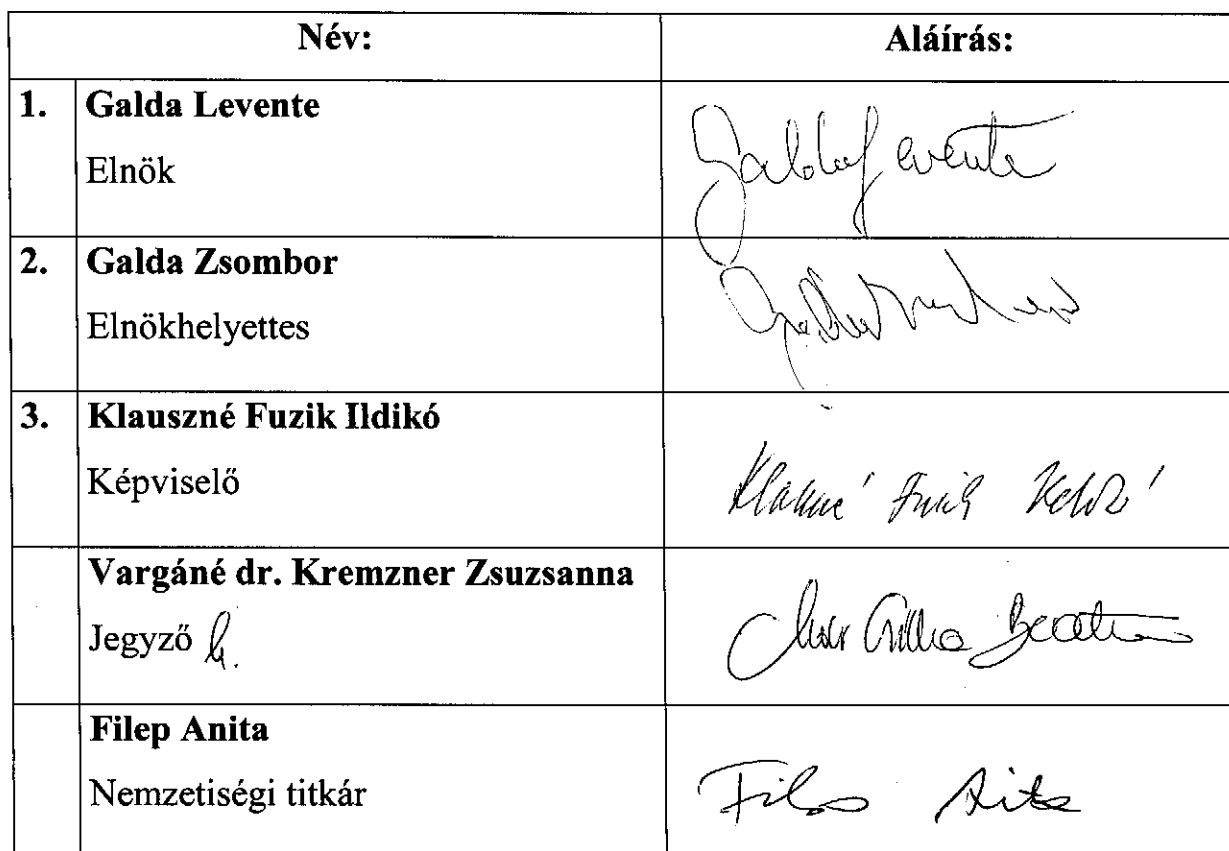 Név: Aláírás:
1. Galda Levente
Elnök
Galda Levente
2. Galda Zsombor
Elnökhelyettes
3. Klauszné Fuzik Ildikó
Képviselő
Klauszné Fuzik Ildikó
Vargáné dr. Kremzner Zsuzsanna
Jegyző h.
Filep Anita
Nemzetiségi titkár
Filep Anita